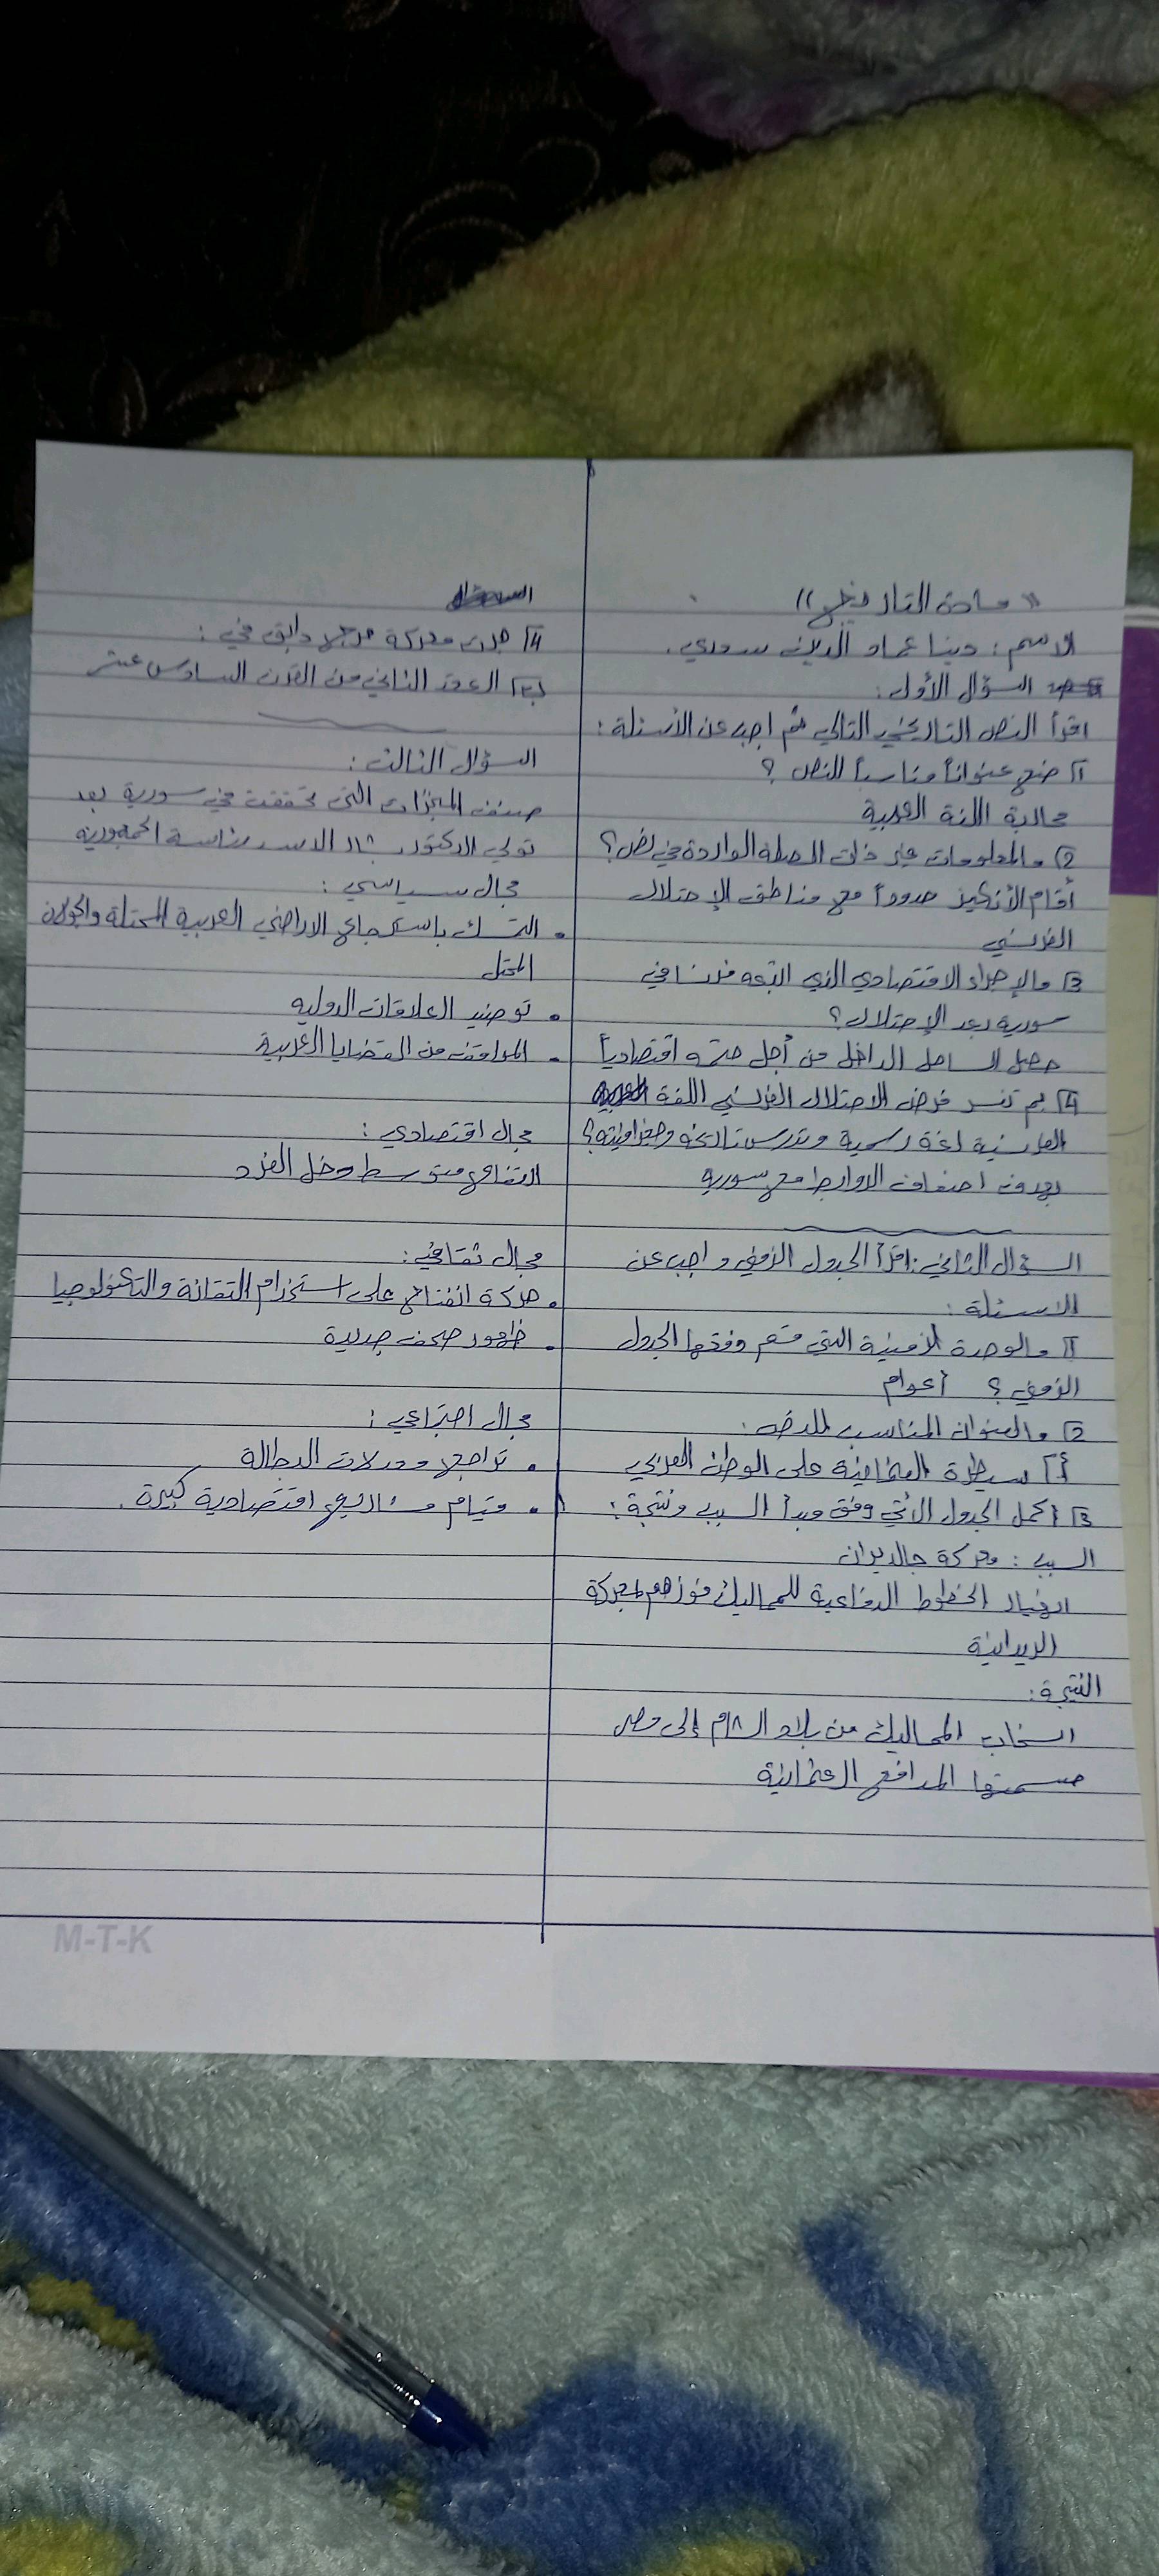 « مادة التاريخ »
الاسم: دينا عماد الدين سودي.
السؤال الأول:
اقرأ النص التاريخي التالي ثم اجب عن الأسئلة:
1 ضع عنواناً مناسباً للنص؟
محاربة اللغة العربية
2 مالمعلومات غير ذات الصلة الواردة في نص؟
أقام الأنكليز حدوداً مع مناطق الإحتلال
الفرنسي
3 مالإجراء الاقتصادي الذي اتبعه فرنسا في
سورية بعد الإحتلال؟
فصل الساحل الداخل من أجل اقتصادياً
4 بم تفسر فرض الاحتلال الفرنسي اللغة
الفرنسية لغة رسمية وتدرس تاريخه وجغرافيته؟
بهدف اضعاف الروابط مع سورية
السؤال الثاني: اقرأ الجدول الزمني واجب عن
الاسئلة:
1 مالوحدة الزمنية التي قسم وفقها الجدول
الزمني؟ أعوام
2 مالعنوان المناسب
أ سيطرة العثمانية على الوطن العربي
3 أكمل الجدول الآتي وفق مبدأ السبب ونتيجة:
السبب: معركة جالديران
انهيار الخطوط الدفاعية للمماليك فوزهم بمعركة
الريدانية
النتيجة:
انسحاب المماليك من بلاد الشام إلى مصر
حسمتها المدافع العثمانية
4 جرت معركة مرج دابق في:
ب العقد الثاني من القرن السادس عشر
السؤال الثالث:
صنف المنجزات التي تحققت في سورية بعد
تولي الدكتور بشار الاسد رئاسة الجمهورية
مجال سياسي:
• التمسك باسترجاع الاراضي العربية المحتلة والجولان
المحتل
• توطيد العلاقات الدولية
• المواقف من القضايا العربية
مجال اقتصادي:
ارتفاع متوسط دخل الفرد
مجال ثقافي:
• حركة انفتاح على استخدام التقانة والتكنولوجيا
• ظهور صحف جديدة
مجال اجتماعي:
• تراجع معدلات البطالة
• قيام مشاريع اقتصادية كبيرة.
M-T-K